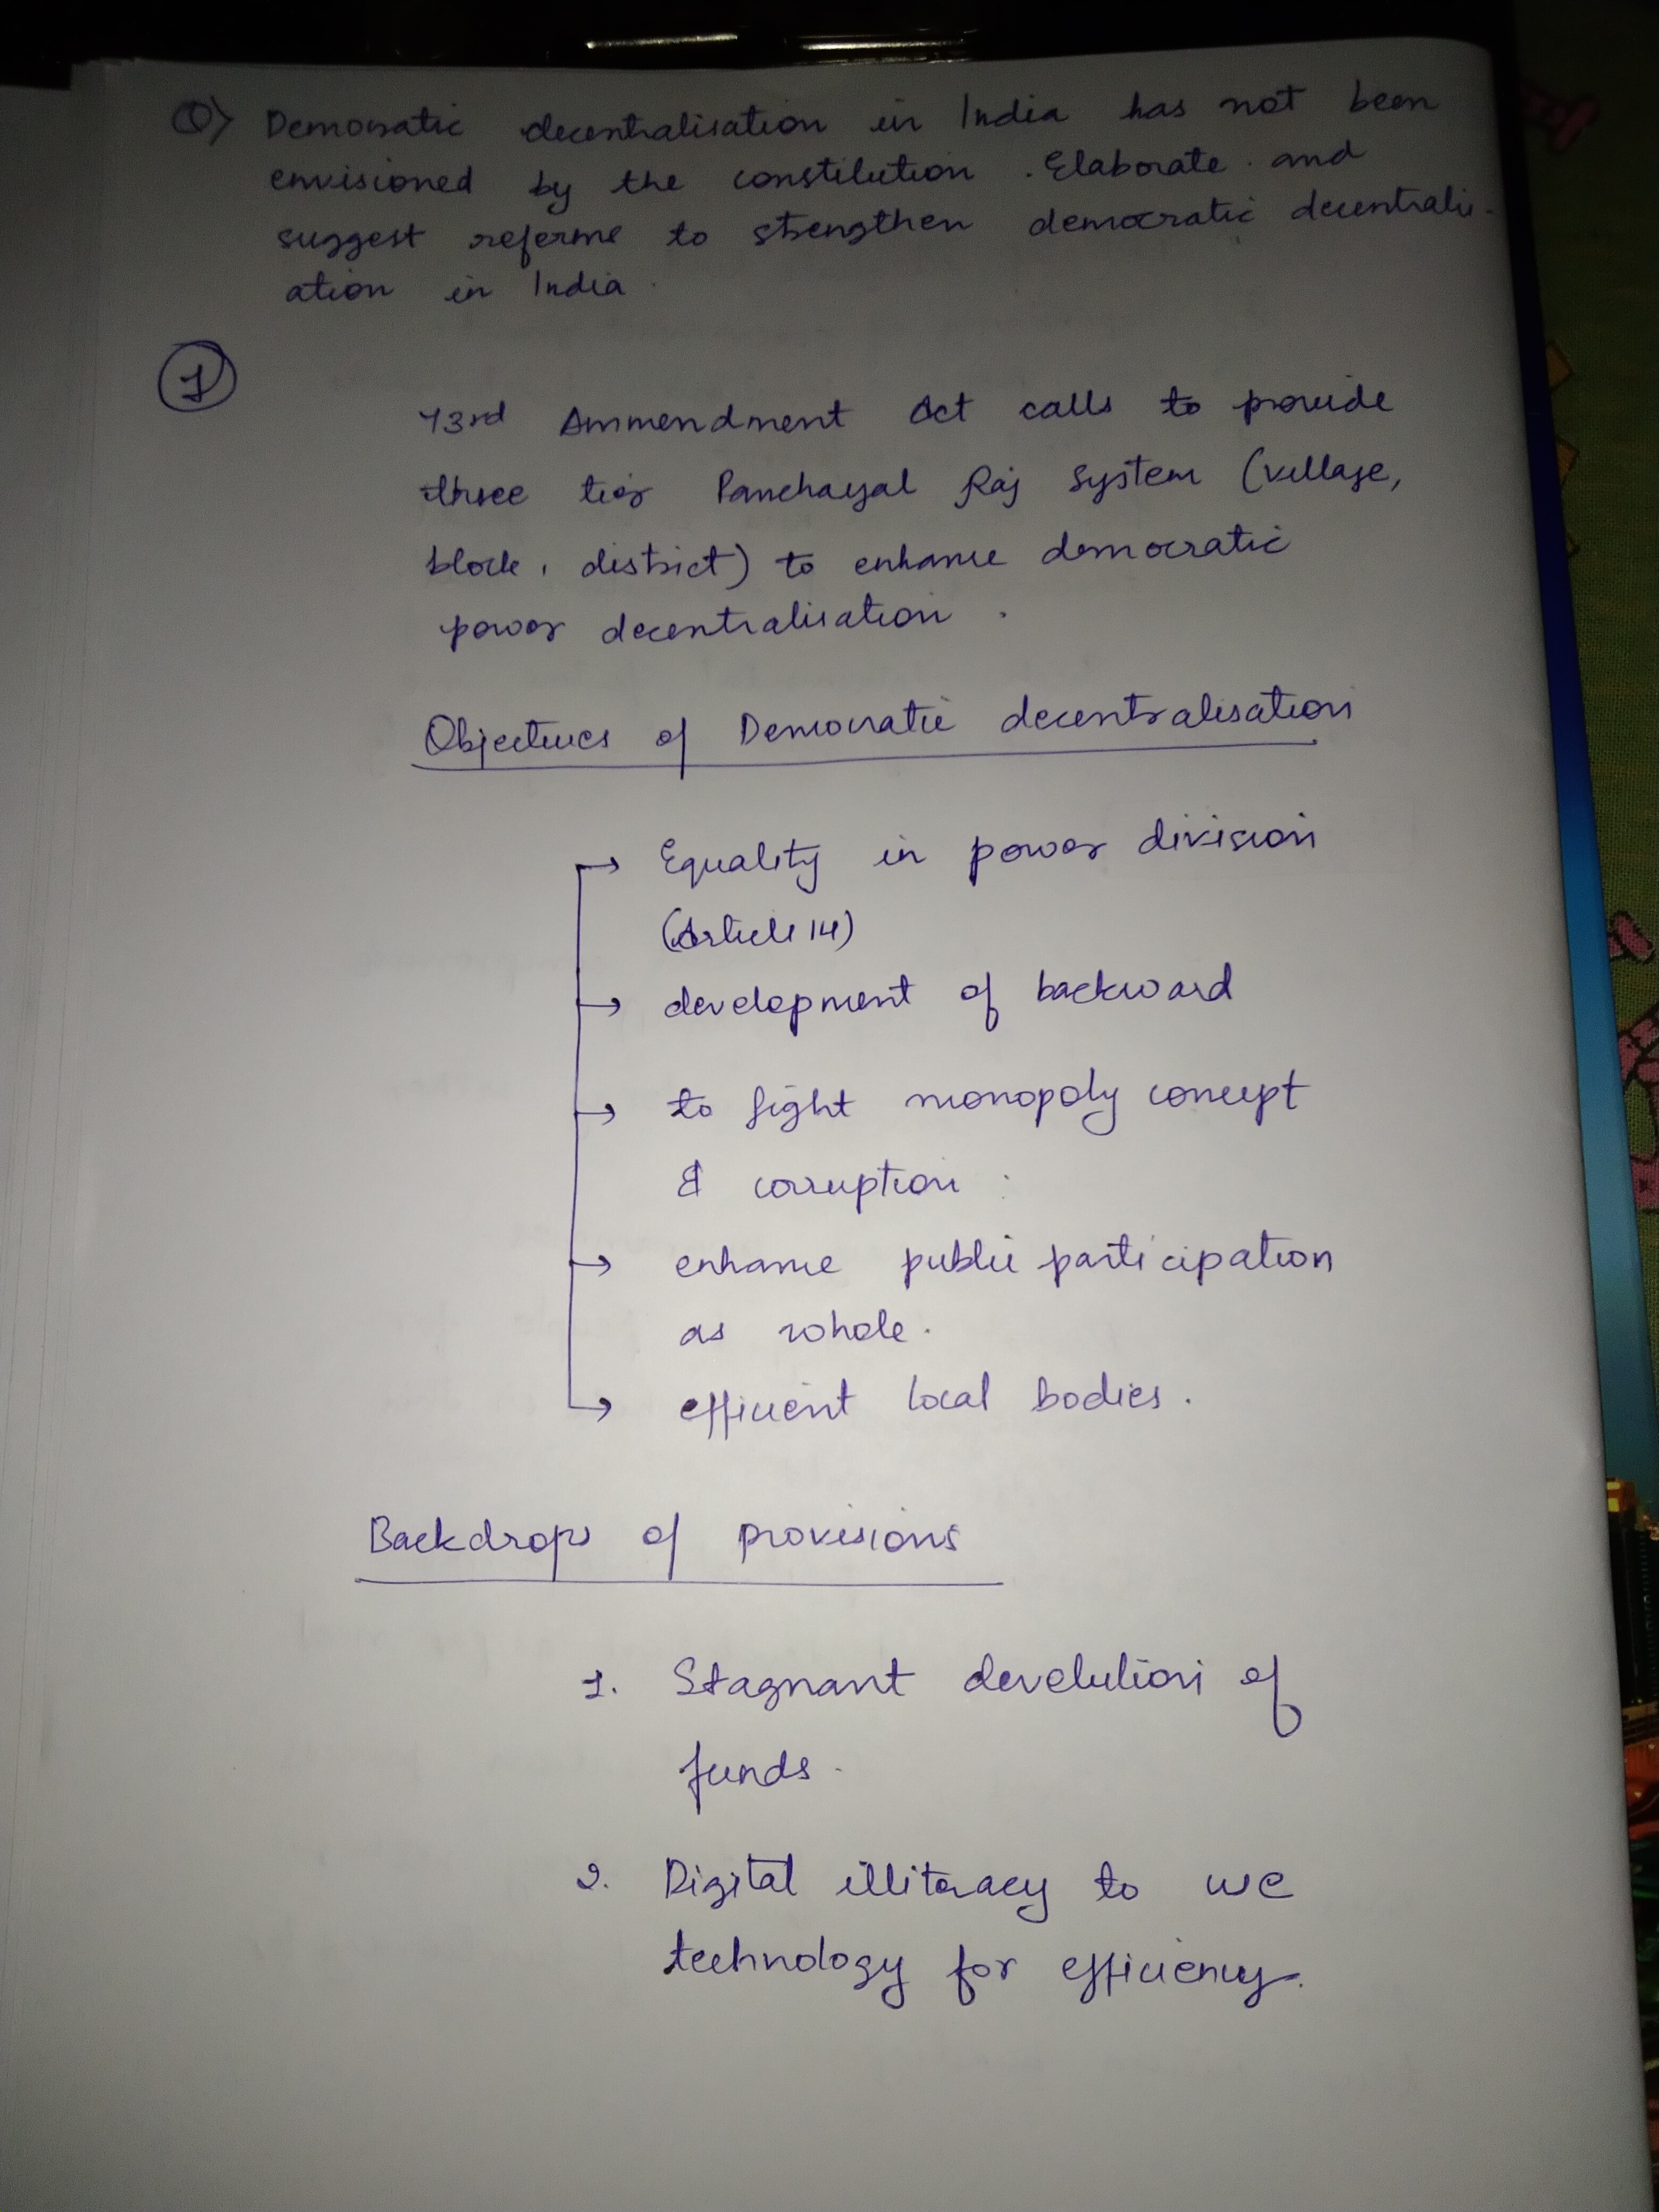 Q> Democratic decentralisation in India has not been
envisioned by the constitution. Elaborate and
suggest reforms to strengthen democratic decentralis-
ation in India.
1
73rd Ammendment Act calls to provide
three tier Panchayat Raj System (village,
block, district) to enhance democratic
power decentralisation.
Objectives of Democratic decentralisation
→ Equality in power division
(Article 14)
→ development of backward
→ to fight monopoly concept
& corruption.
→ enhance public participation
as whole.
→ efficient local bodies.
Backdrops of provisions
1. Stagnant devolution of
funds.
2. Digital illiteracy to use
technology for efficiency.